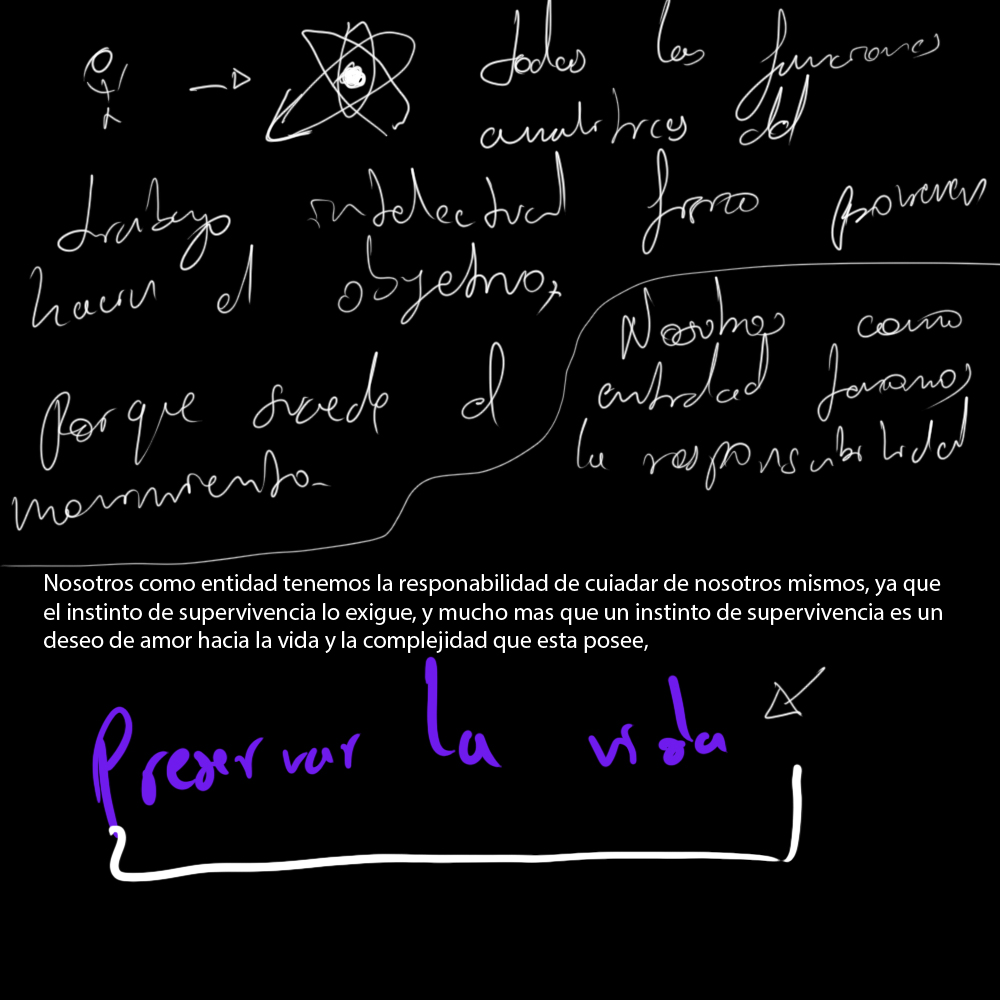 todas las funciones
analiticas del
trabajo intelectual fisico
hacia el objetivo,
Porque sucede el
movimiento.
Nosotros como
entidad tenemos
la responsabilidad
Nosotros como entidad tenemos la responabilidad de cuiadar de nosotros mismos, ya que
el instinto de supervivencia lo exigue, y mucho mas que un instinto de supervivencia es un
deseo de amor hacia la vida y la complejidad que esta posee,
Preservar la vida